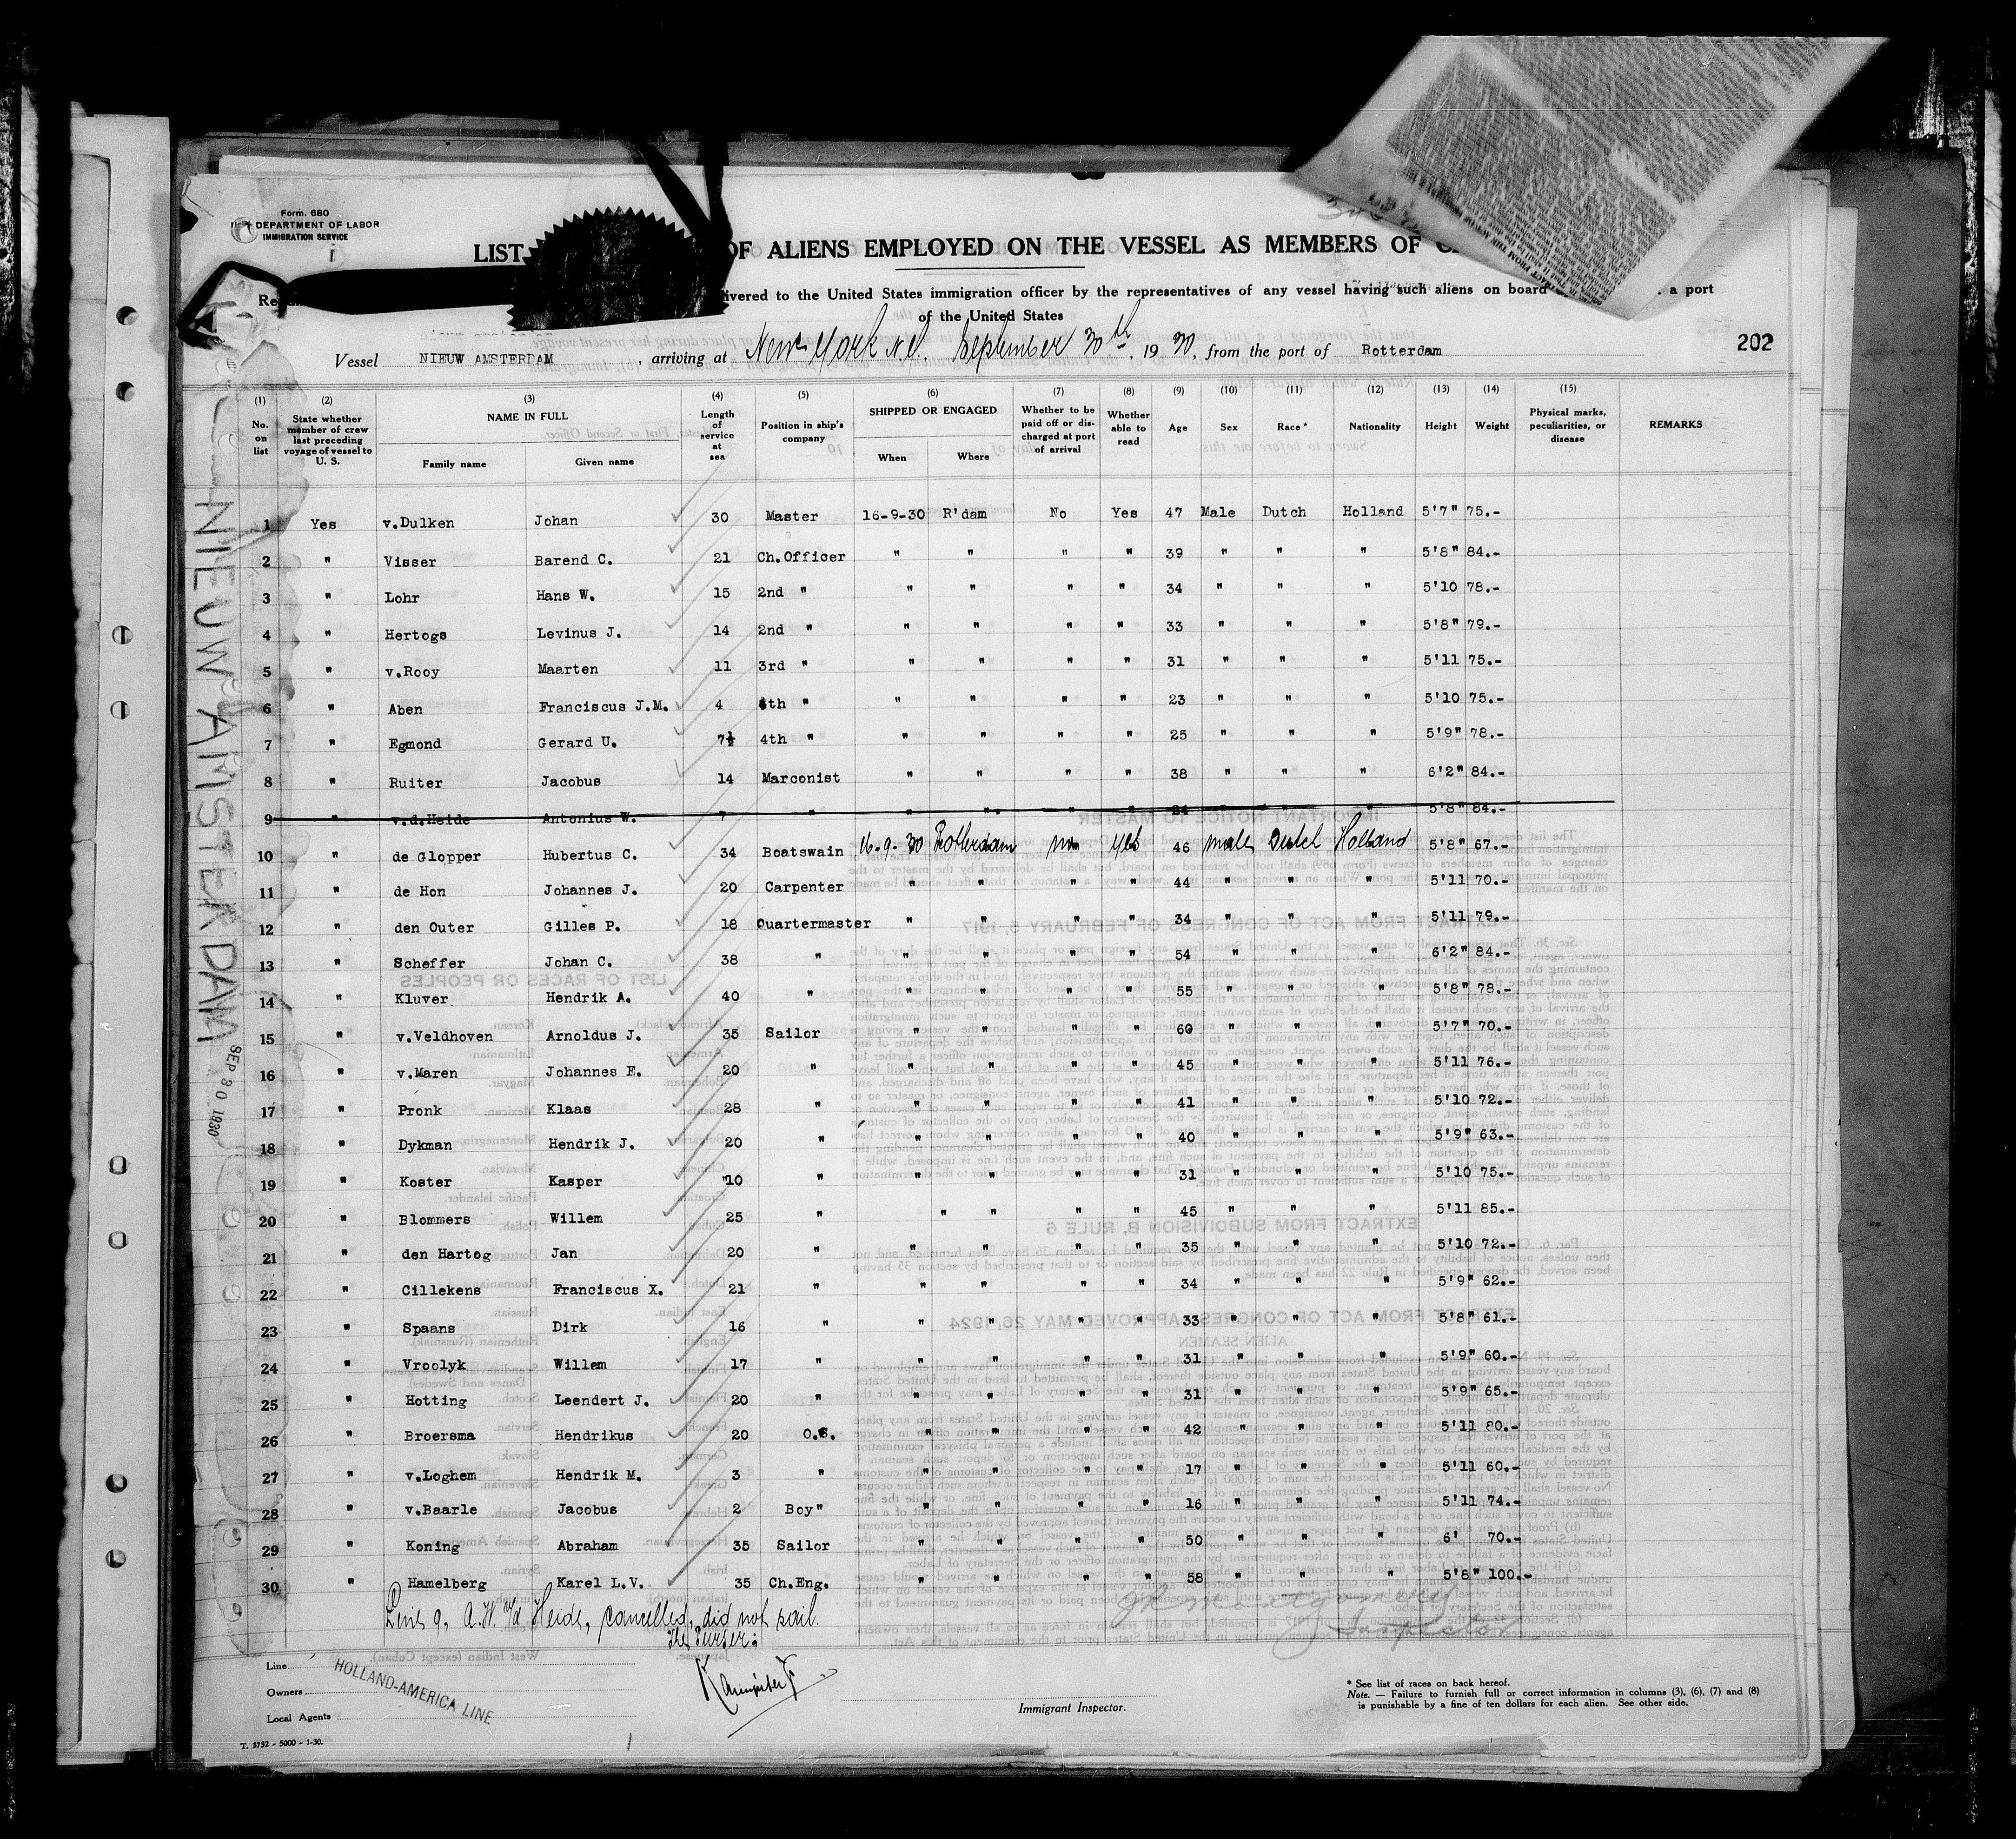 Form. 680
DEPARTMENT OF LABOR
IMMIGRATION SERVICE
LIST OF ALIENS EMPLOYED ON THE VESSEL AS MEMBERS OF
livered to the United States immigration officer by the representatives of any vessel having such aliens on board a port
of the United States
202
Vessel NIEUW AMSTERDAM, arriving at New York N.Y. September 30th, 1930, from the port of Rotterdam
(1) No. on list
(2) State whether member of crew last preceding voyage of vessel to U. S.
(3) NAME IN FULL Family name Given name
(4) Length of service at sea
(5) Position in ship's company
(6) SHIPPED OR ENGAGED When Where
(7) Whether to be paid off or discharged at port of arrival
(8) Whether able to read
(9) Age
(10) Sex
(11) Race *
(12) Nationality
(13) Height
(14) Weight
(15) Physical marks, peculiarities, or disease
REMARKS
1 Yes v.Dulken Johan 30 Master 16-9-30 R'dam No Yes 47 Male Dutch Holland 5'7" 75.-
2 " Visser Barend C. 21 Ch.Officer " " " " 39 " " " 5'8" 84.-
3 " Lohr Hans W. 15 2nd " " " " " 34 " " " 5'10 78.-
4 " Hertogs Levinus J. 14 2nd " " " " " 33 " " " 5'8" 79.-
5 " v.Rooy Maarten 11 3rd " " " " " 31 " " " 5'11 75.-
6 " Aben Franciscus J.M. 4 4th " " " " " 23 " " " 5'10 75.-
7 " Egmond Gerard U. 7½ 4th " " " " " 25 " " " 5'9" 78.-
8 " Ruiter Jacobus 14 Marconist " " " " 38 " " " 6'2" 84.-
9 " v.d.Heide Antonius W. 7 " " " " " 24 " " " 5'8" 84.-
10 " de Glopper Hubertus C. 34 Boatswain 16-9-30 Rotterdam no yes 46 male Dutch Holland 5'8" 67.-
11 " de Hon Johannes J. 20 Carpenter " " " " 44 " " " 5'11 70.-
12 " den Outer Gilles P. 18 Quartermaster " " " " 34 " " " 5'11 79.-
13 " Scheffer Johan C. 38 " " " " " 54 " " " 6'2" 84.-
14 " Kluver Hendrik A. 40 " " " " " 55 " " " 5'8" 78.-
15 " v.Veldhoven Arnoldus J. 35 Sailor " " " " 60 " " " 5'7" 70.-
16 " v.Maren Johannes E. 20 " " " " " 45 " " " 5'11 76.-
17 " Pronk Klaas 28 " " " " " 41 " " " 5'10 72.-
18 " Dykman Hendrik J. 20 " " " " " 40 " " " 5'9" 63.-
19 " Koster Kasper "10 " " " " " 31 " " " 5'10 75.-
20 " Blommers Willem 25 " " " " " 45 " " " 5'11 85.-
21 " den Hartog Jan 20 " " " " " 35 " " " 5'10 72.-
22 " Cillekens Franciscus X. 21 " " " " " 34 " " " 5'9" 62.-
23 " Spaans Dirk 16 " " " " " 33 " " " 5'8" 61.-
24 " Vroolyk Willem 17 " " " " " 31 " " " 5'9" 60.-
25 " Hotting Leendert J. 20 " " " " " 31 " " " 5'9" 65.-
26 " Broersma Hendrikus 20 O.S. " " " " 42 " " " 5'11 80.-
27 " v.Loghem Hendrik M. 3 " " " " " 17 " " " 5'11 60.-
28 " v.Baarle Jacobus 2 Boy" " " " " 16 " " " 5'11 74.-
29 " Koning Abraham 35 Sailor " " " " 50 " " " 6' 70.-
30 " Hamelberg Karel L.V. 35 Ch.Eng. " " " " 58 " " " 5'8" 100.-
Line 9, A.W. v/d Heide, cancelled, did not sail.
The Purser:
JR Montgomery
Inspector
NIEUW AMSTERDAM
SEP 30 1930
Line
Owners
Local Agents
HOLLAND-AMERICA LINE
Immigrant Inspector.
* See list of races on back hereof.
Note. — Failure to furnish full or correct information in columns (3), (6), (7) and (8)
is punishable by a fine of ten dollars for each alien. See other side.
T. 3732 - 5000 - 1-30.